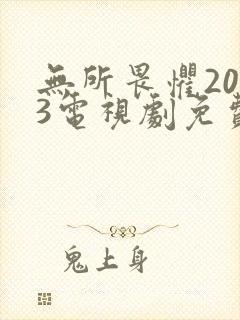 無所畏懼20
3電視劇免費
鬼上身